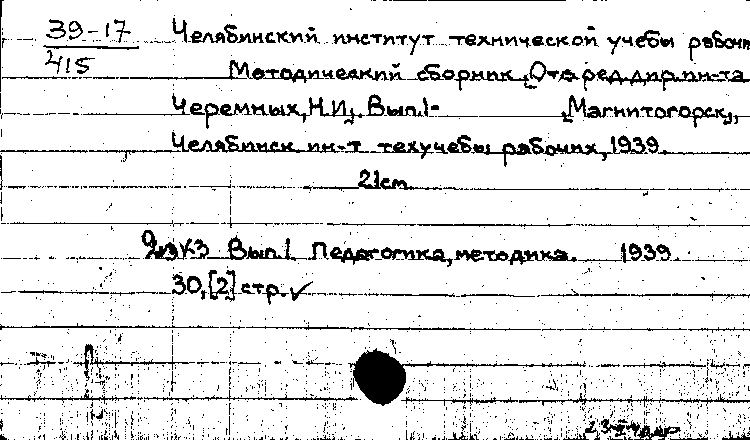 39-17
415
Челябинский институт технической учебы рабочи
Методический сборник [Отв. ред. дир. ин-та
Черемных, Н.И.]. Вып.1-
[Магнитогорск],
Челябинск. ин-т техучебы рабочих, 1939.
21см.
2экз Вып.1. Педагогика, методика. 1939.
30,[2] стр. ✓